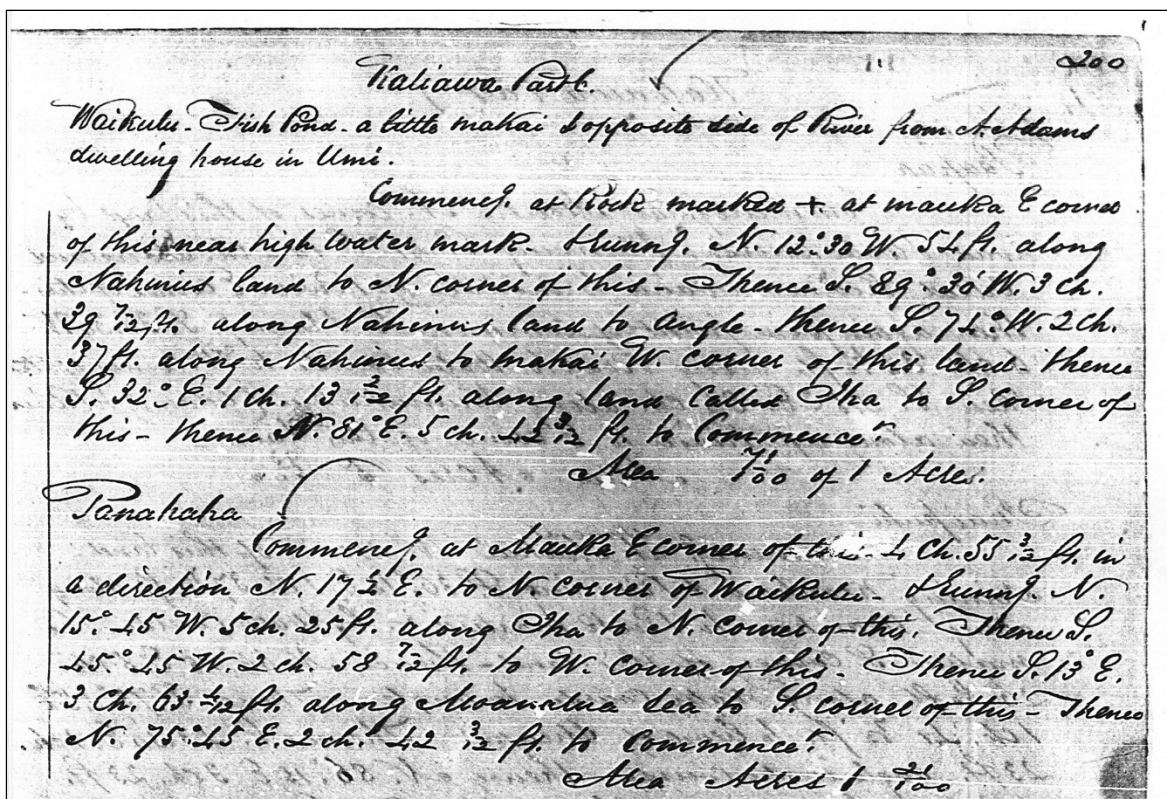 200
Kaliawa Part 6.
Waikulu - Fish Pond - a little makai & opposite side of River from A. Adams
dwelling house in Umi.
Commencg. at Rock marked + at mauka E corner
of this near high water mark - & runng. N. 12°.30 W. 54 ft. along
Nahinus land to N. corner of this - Thence S. 89°. 30' W. 3 ch.
39 7/12 ft. along Nahinus land to angle - thence S. 74°. W. 2 ch.
37 ft. along Nahinus to makai W. corner of this land - thence
S. 32° E. 1 ch. 13 2/12 ft. along land called Iha to S. corner of
this - thence N. 81° E. 5 ch. 42 3/12 ft. to Commencet.
Area 71/100 of 1 Acres.
Panahaha
Commencg. at Mauka E corner of this - 4 ch. 55 3/12 ft. in
a direction N. 17 1/2 E. to N. corner of Waikulu - & runng. N.
15°. 45 W. 5 ch. 25 ft. along Iha to N. corner of this. Thence S.
45.° 45 W. 2 ch. 58 7/12 ft. to W. corner of this - Thence S. 13° E.
3 ch. 63 4/12 ft. along Moanalua Sea to S. corner of this - Thence
N. 75°.45 E. 2 ch. 42 3/12 ft. to Commencet.
Area Acres 1 21/100